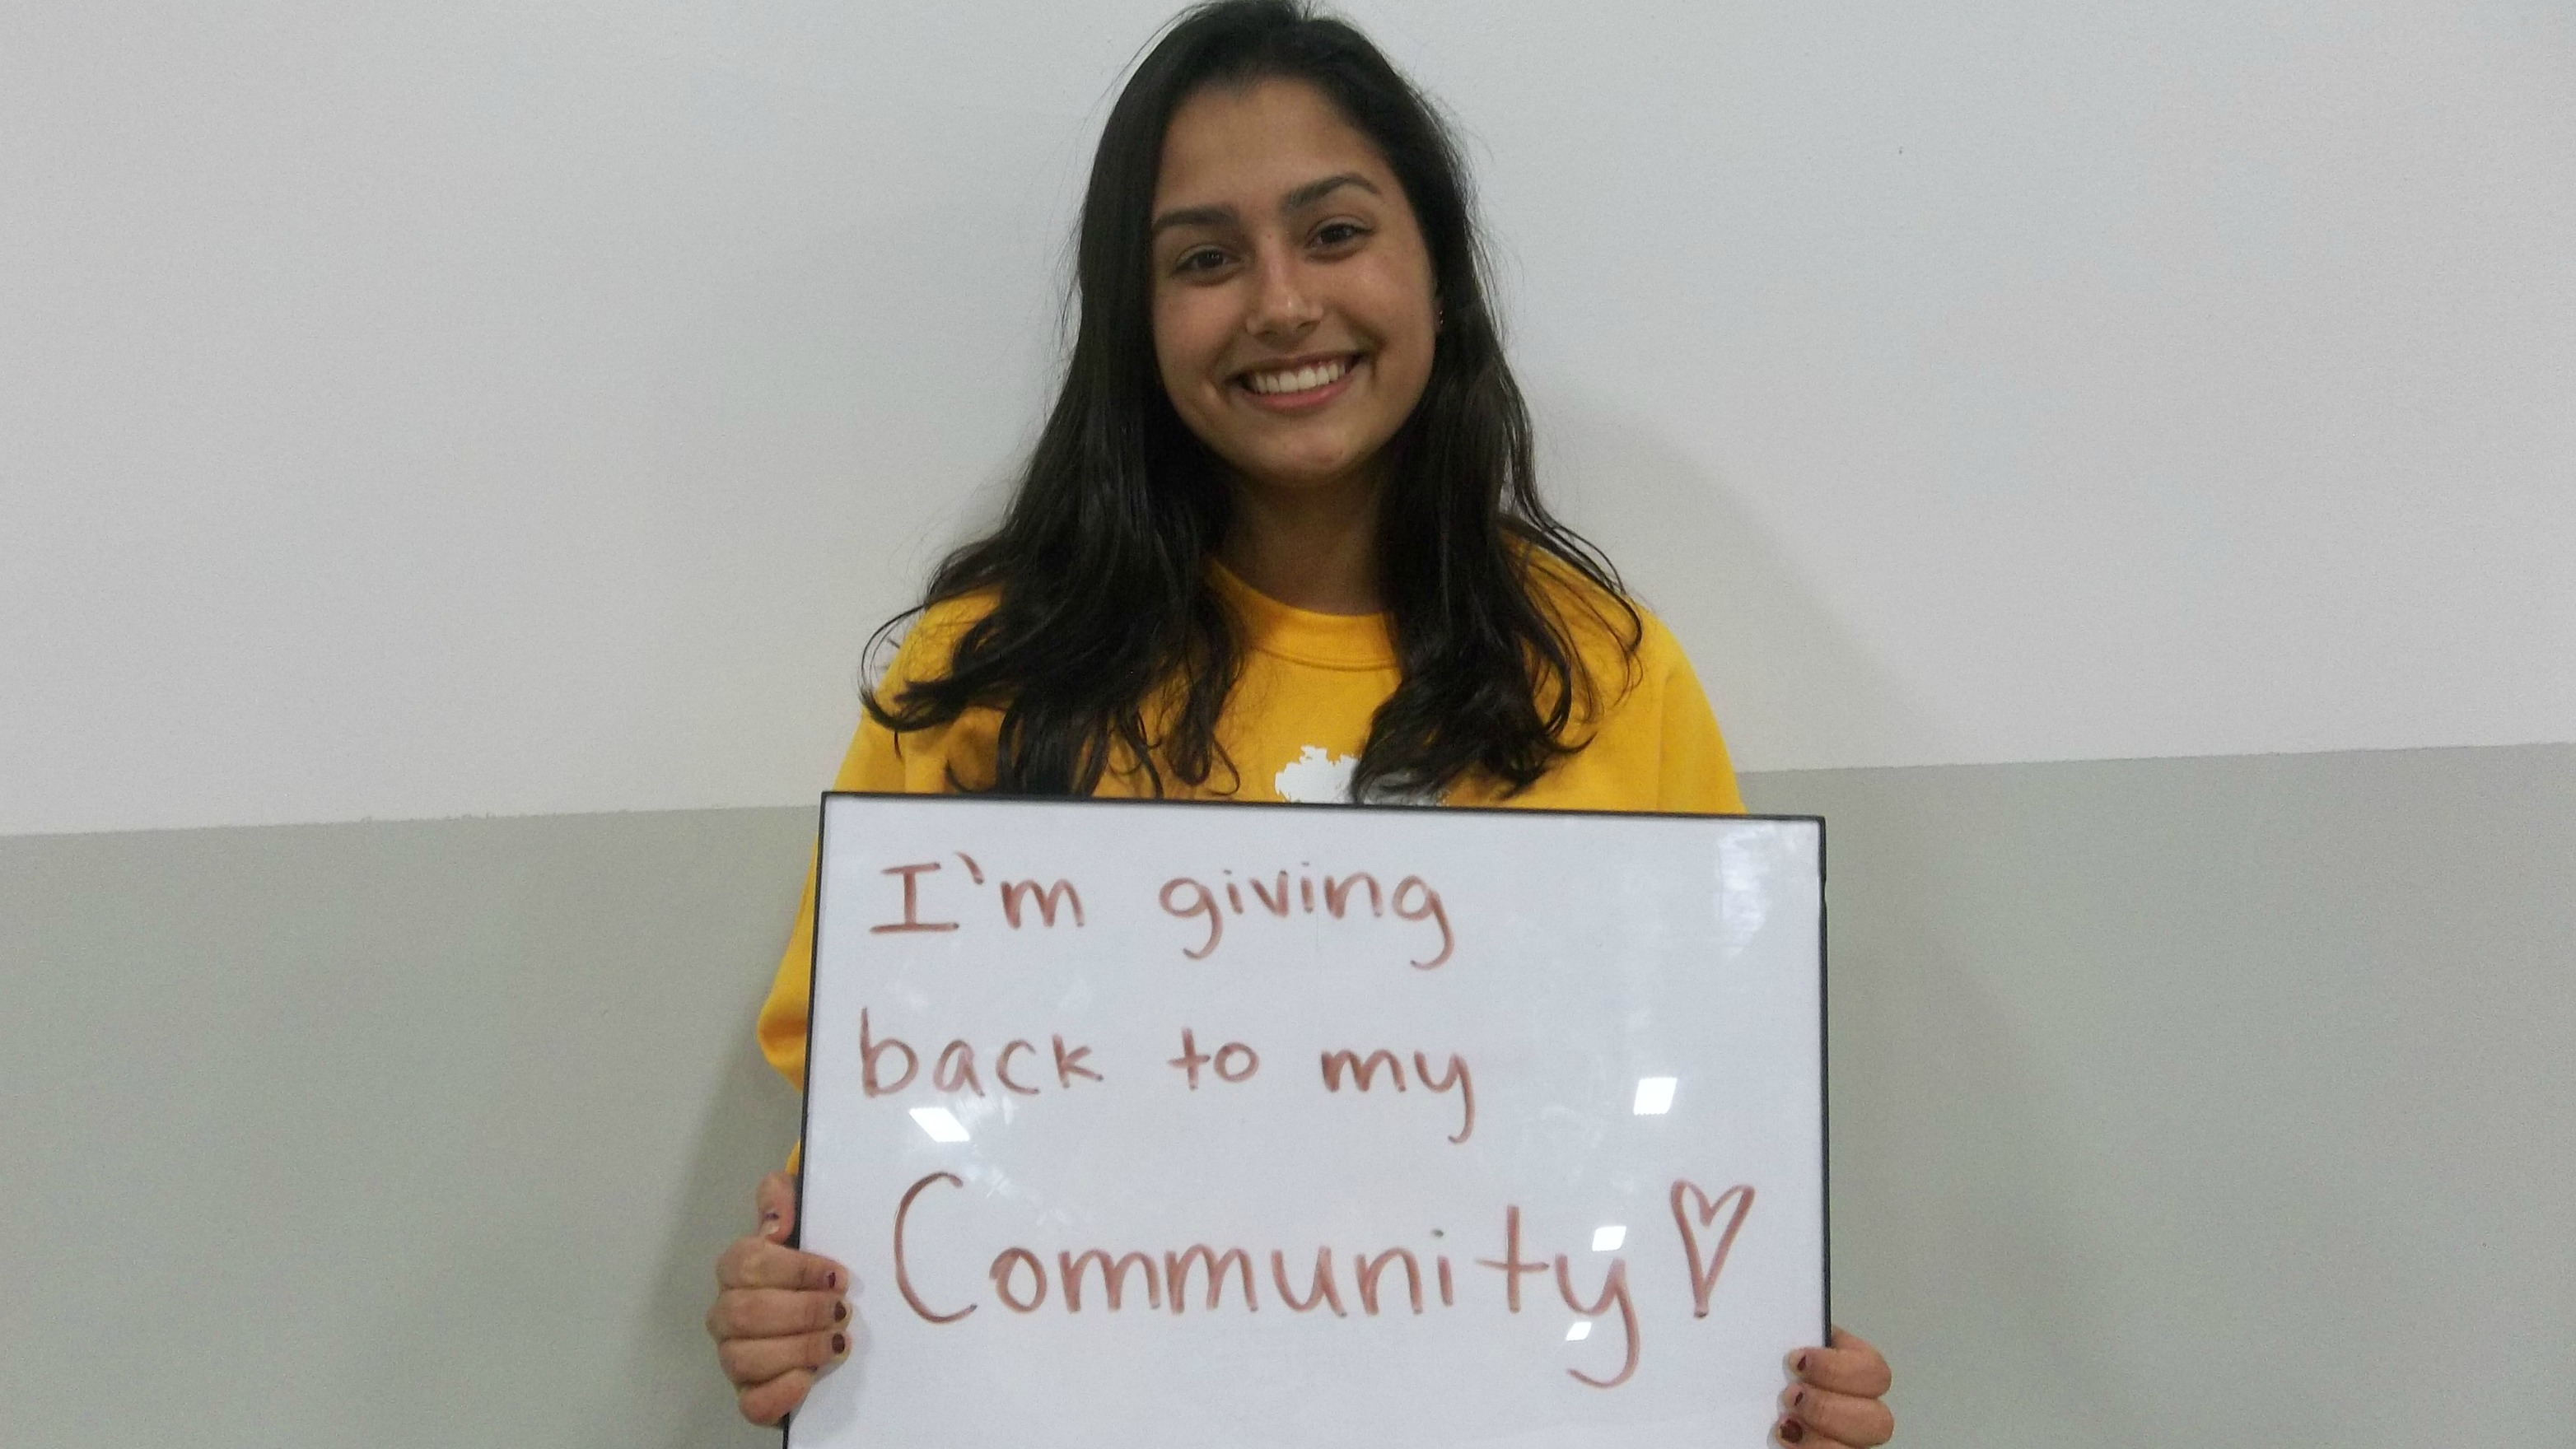 I'm giving
back to my
Community ♡